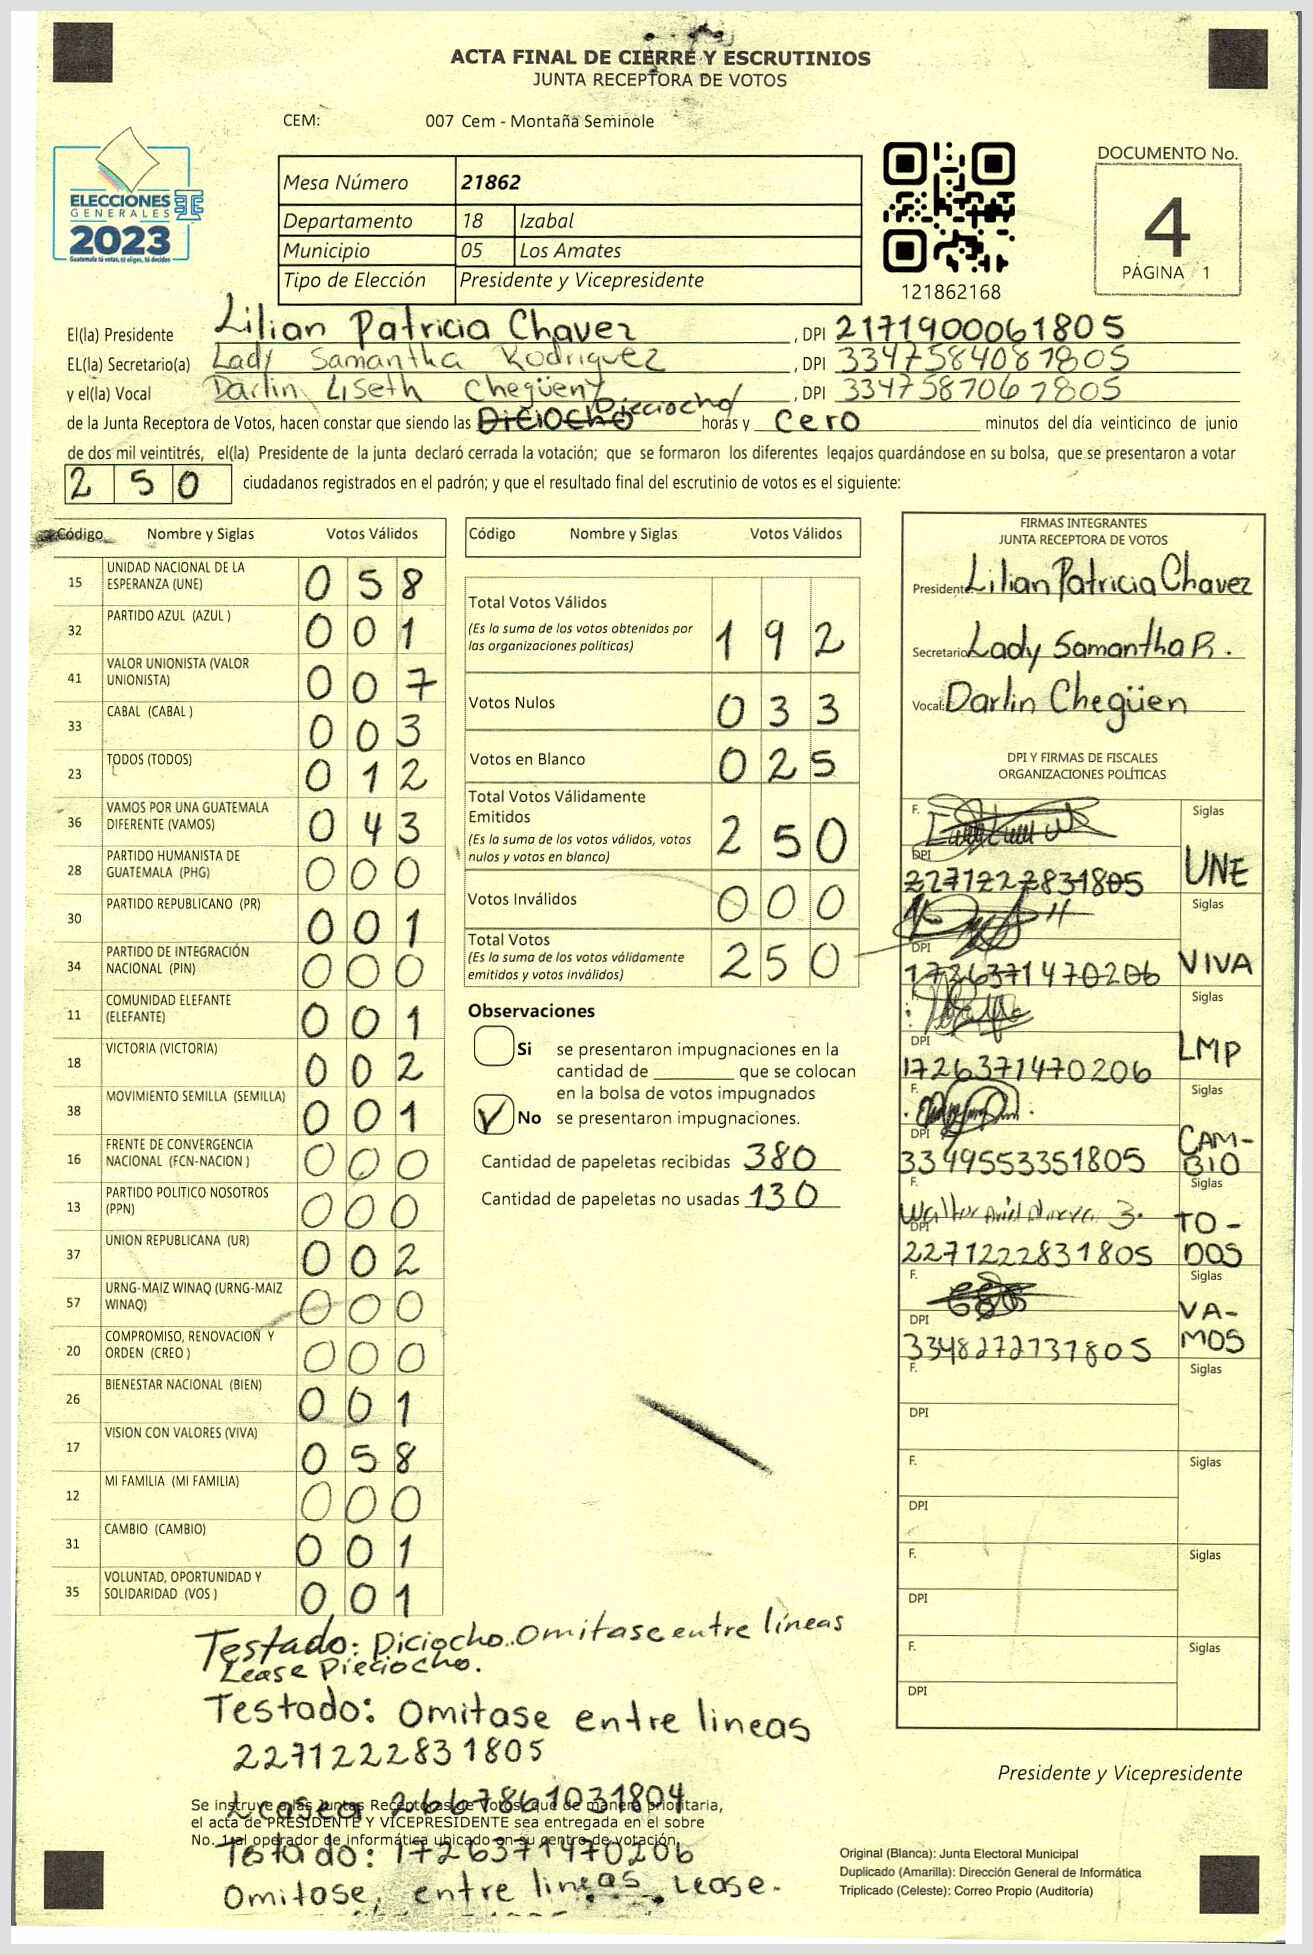 ACTA FINAL DE CIERRE Y ESCRUTINIOS
JUNTA RECEPTORA DE VOTOS
CEM: 007 Cem - Montaña Seminole
ELECCIONES
GENERALES
2023
Guatemala tú votas, tú eliges, tú decides
Mesa Número 21862
Departamento 18 Izabal
Municipio 05 Los Amates
Tipo de Elección Presidente y Vicepresidente
121862168
DOCUMENTO No.
4
PÁGINA 1
El(la) Presidente Lilian Patricia Chavez, DPI 2171900061805
EL(la) Secretario(a) Lady Samantha Rodriguez, DPI 3347584081805
y el(la) Vocal Darlin Liseth Chegüen, DPI 3347587061805
de la Junta Receptora de Votos, hacen constar que siendo las Diciocho Dieciocho horas y cero minutos del día veinticinco de junio
de dos mil veintitrés, el(la) Presidente de la junta declaró cerrada la votación; que se formaron los diferentes legajos quardándose en su bolsa, que se presentaron a votar
250 ciudadanos registrados en el padrón; y que el resultado final del escrutinio de votos es el siguiente:
Código Nombre y Siglas Votos Válidos
15 UNIDAD NACIONAL DE LA ESPERANZA (UNE) 058
32 PARTIDO AZUL (AZUL ) 001
41 VALOR UNIONISTA (VALOR UNIONISTA) 007
33 CABAL (CABAL ) 003
23 TODOS (TODOS) 012
36 VAMOS POR UNA GUATEMALA DIFERENTE (VAMOS) 043
28 PARTIDO HUMANISTA DE GUATEMALA (PHG) 000
30 PARTIDO REPUBLICANO (PR) 001
34 PARTIDO DE INTEGRACIÓN NACIONAL (PIN) 000
11 COMUNIDAD ELEFANTE (ELEFANTE) 001
18 VICTORIA (VICTORIA) 002
38 MOVIMIENTO SEMILLA (SEMILLA) 001
16 FRENTE DE CONVERGENCIA NACIONAL (FCN-NACION ) 000
13 PARTIDO POLITICO NOSOTROS (PPN) 000
37 UNION REPUBLICANA (UR) 002
57 URNG-MAIZ WINAQ (URNG-MAIZ WINAQ) 000
20 COMPROMISO, RENOVACION Y ORDEN (CREO ) 000
26 BIENESTAR NACIONAL (BIEN) 001
17 VISION CON VALORES (VIVA) 058
12 MI FAMILIA (MI FAMILIA) 000
31 CAMBIO (CAMBIO) 001
35 VOLUNTAD, OPORTUNIDAD Y SOLIDARIDAD (VOS ) 001
Código Nombre y Siglas Votos Válidos
Total Votos Válidos
(Es la suma de los votos obtenidos por
las organizaciones políticas) 192
Votos Nulos 033
Votos en Blanco 025
Total Votos Válidamente
Emitidos
(Es la suma de los votos válidos, votos
nulos y votos en blanco) 250
Votos Inválidos 000
Total Votos
(Es la suma de los votos válidamente
emitidos y votos inválidos) 250
Observaciones
Si se presentaron impugnaciones en la
cantidad de ________ que se colocan
en la bolsa de votos impugnados
No se presentaron impugnaciones.
Cantidad de papeletas recibidas 380
Cantidad de papeletas no usadas 130
FIRMAS INTEGRANTES
JUNTA RECEPTORA DE VOTOS
Presidente: Lilian Patricia Chavez
Secretario: Lady Samantha R.
Vocal: Darlin Chegüen
DPI Y FIRMAS DE FISCALES
ORGANIZACIONES POLÍTICAS
F. Siglas
DPI 2271222831805 UNE
Siglas
DPI 1726371470206 VIVA
F. Siglas
DPI 1726371470206 LMP
F. Siglas
DPI 3349553351805 CAMBIO
F. Walter Siglas
DPI 2271222831805 TO-DOS
F. Siglas
DPI 3348272731805 VA-MOS
F. Siglas
DPI
F. Siglas
DPI
F. Siglas
DPI
F. Siglas
DPI
Testado: Diciocho. Omitase entre líneas
Lease Dieciocho.
Testado: Omitase entre lineas
2271222831805
Leasea 2667861031804
Se instruye a las Juntas Receptoras de Votos, que de manera prioritaria,
el acta de PRESIDENTE Y VICEPRESIDENTE sea entregada en el sobre
No. 1 al operador de informática ubicado en su centro de votación.
Testado: 1726371470206
Omitase, entre lineas, Lease.
Presidente y Vicepresidente
Original (Blanca): Junta Electoral Municipal
Duplicado (Amarilla): Dirección General de Informática
Triplicado (Celeste): Correo Propio (Auditoría)